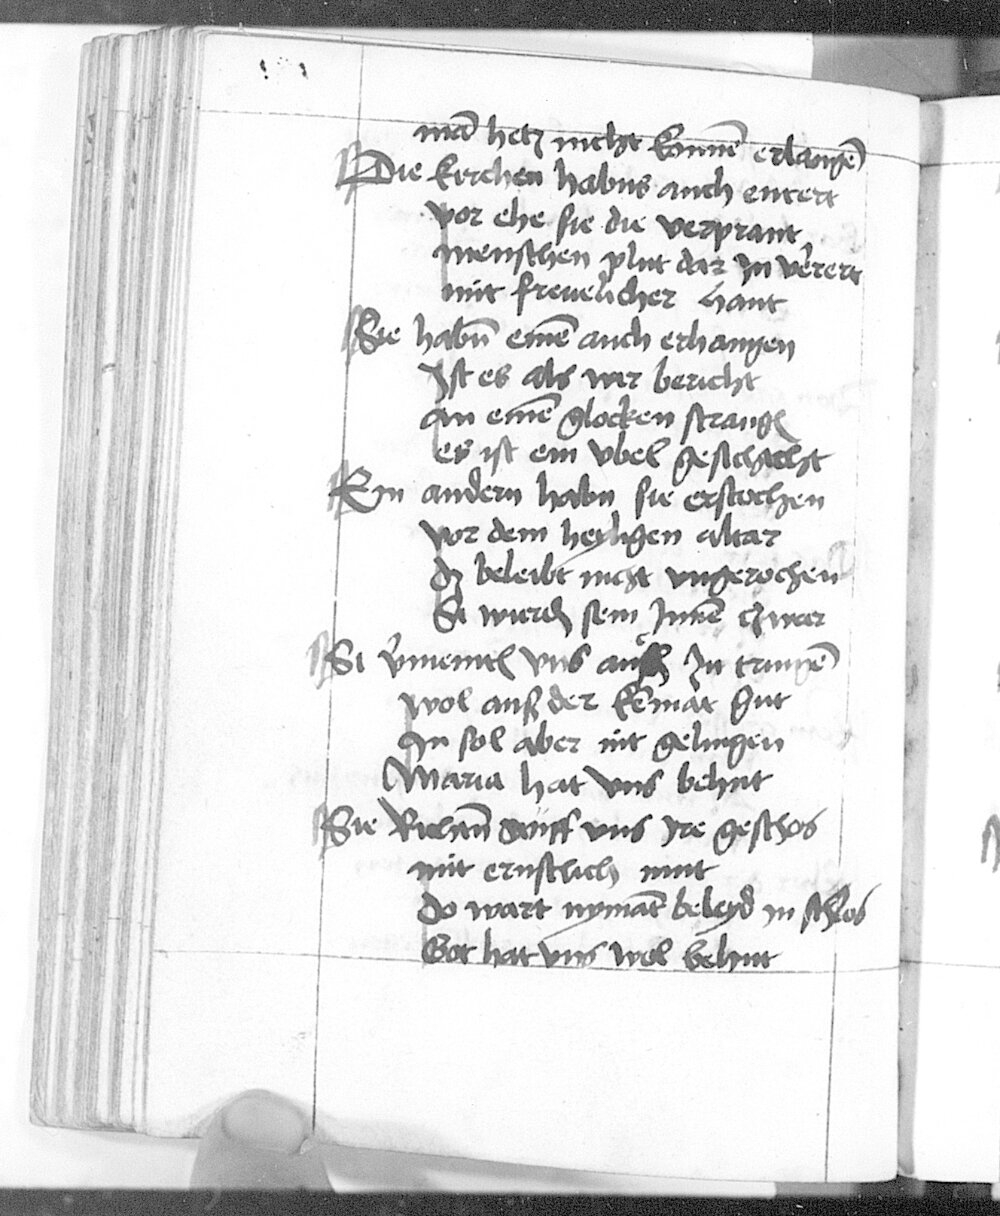 mā hetz nicht kunnē erlangē
Die kirchen habns auch entert
vor ehe sie die verprant
menschen plut dar jn verert
mit frevelicher hant
Sie habn̄ einē auch erhangen
Ist es als wir bericht
an einē glocken strang
es ist ein vbel geschicht
Ein andern habn sie erstochen
vor dem heyligen altar
dz beleibt nicht vngerochen
Si wurdn sein Innē zwar
Si vmeintn vns auch zu tringē
wol auß der kēmat gut
In sol aber nit gelingen
Maria hat vns behut
Sie Richtn̄ auff vns Jre geschos
mit ernstlich mut
do wart nymāt beleyd jn schlos
Got hat vns wol behut